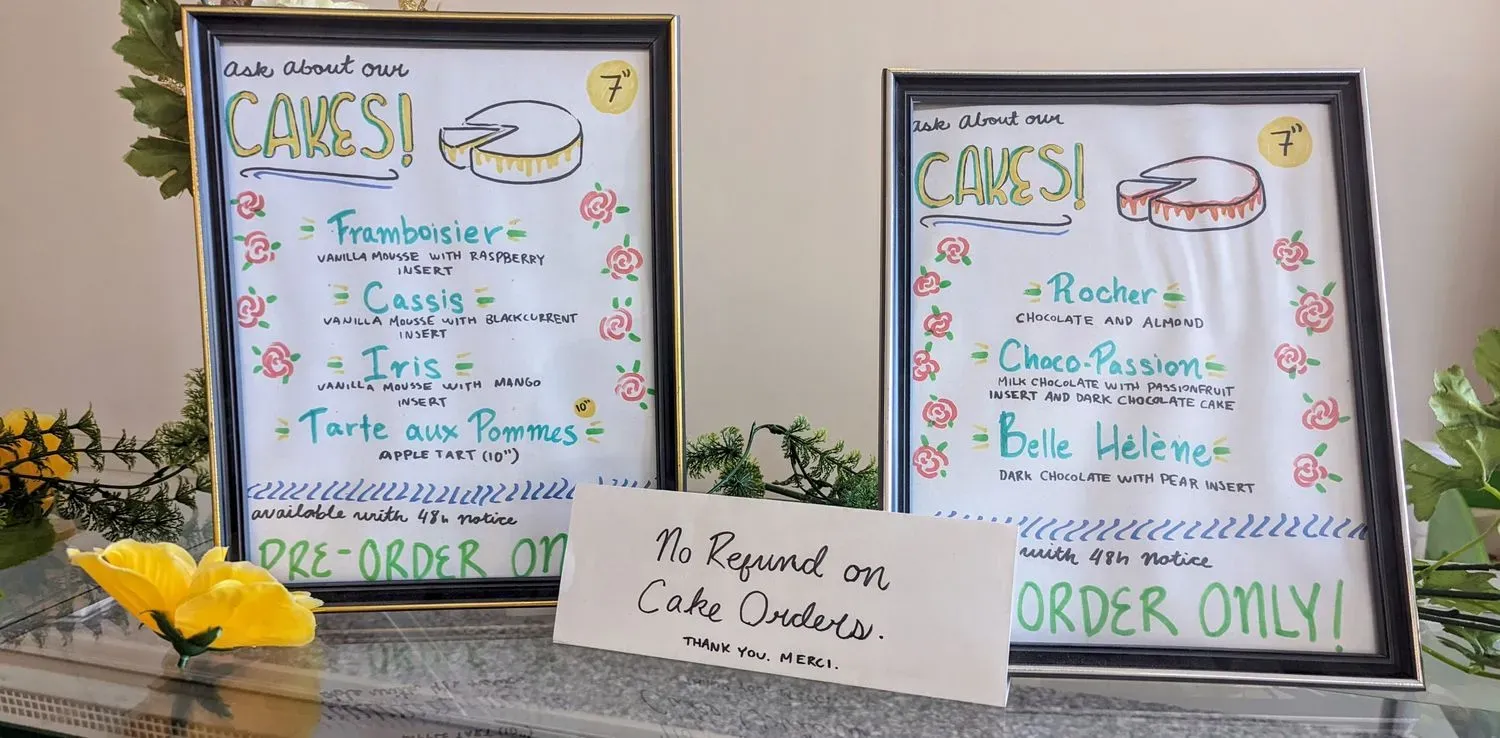 ask about our
CAKES!
7"
Framboisier
VANILLA MOUSSE WITH RASPBERRY
INSERT
Cassis
VANILLA MOUSSE WITH BLACKCURRENT
INSERT
Iris
VANILLA MOUSSE WITH MANGO
INSERT
10"
Tarte aux Pommes
APPLE TART (10")
available with 48h notice
PRE-ORDER ON
ask about our
CAKES!
7"
Rocher
CHOCOLATE AND ALMOND
Choco-Passion
MILK CHOCOLATE WITH PASSIONFRUIT
INSERT AND DARK CHOCOLATE CAKE
Belle Hélène
DARK CHOCOLATE WITH PEAR INSERT
with 48h notice
ORDER ONLY!
No Refund on
Cake Orders.
THANK YOU. MERCI.